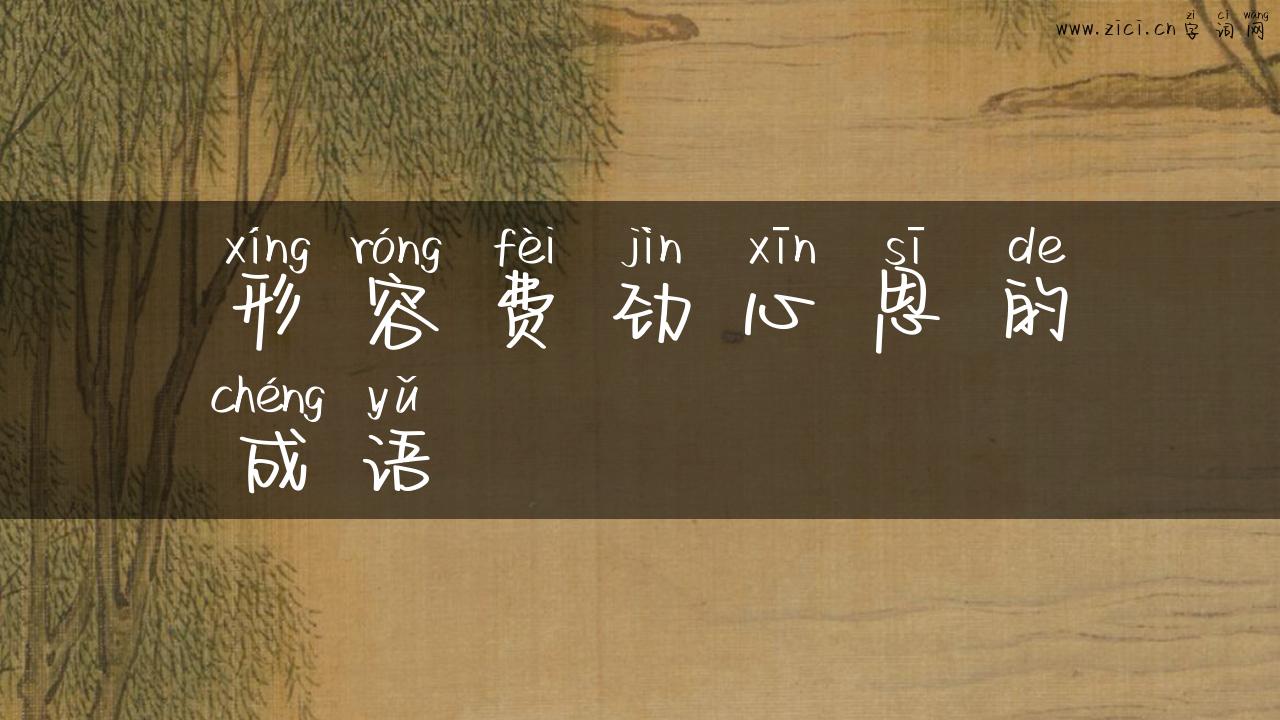 zì cí wǎng
www.zici.cn 字词网
xíng róng fèi jìn xīn sī de
形容费劲心思的
chéng yǔ
成语